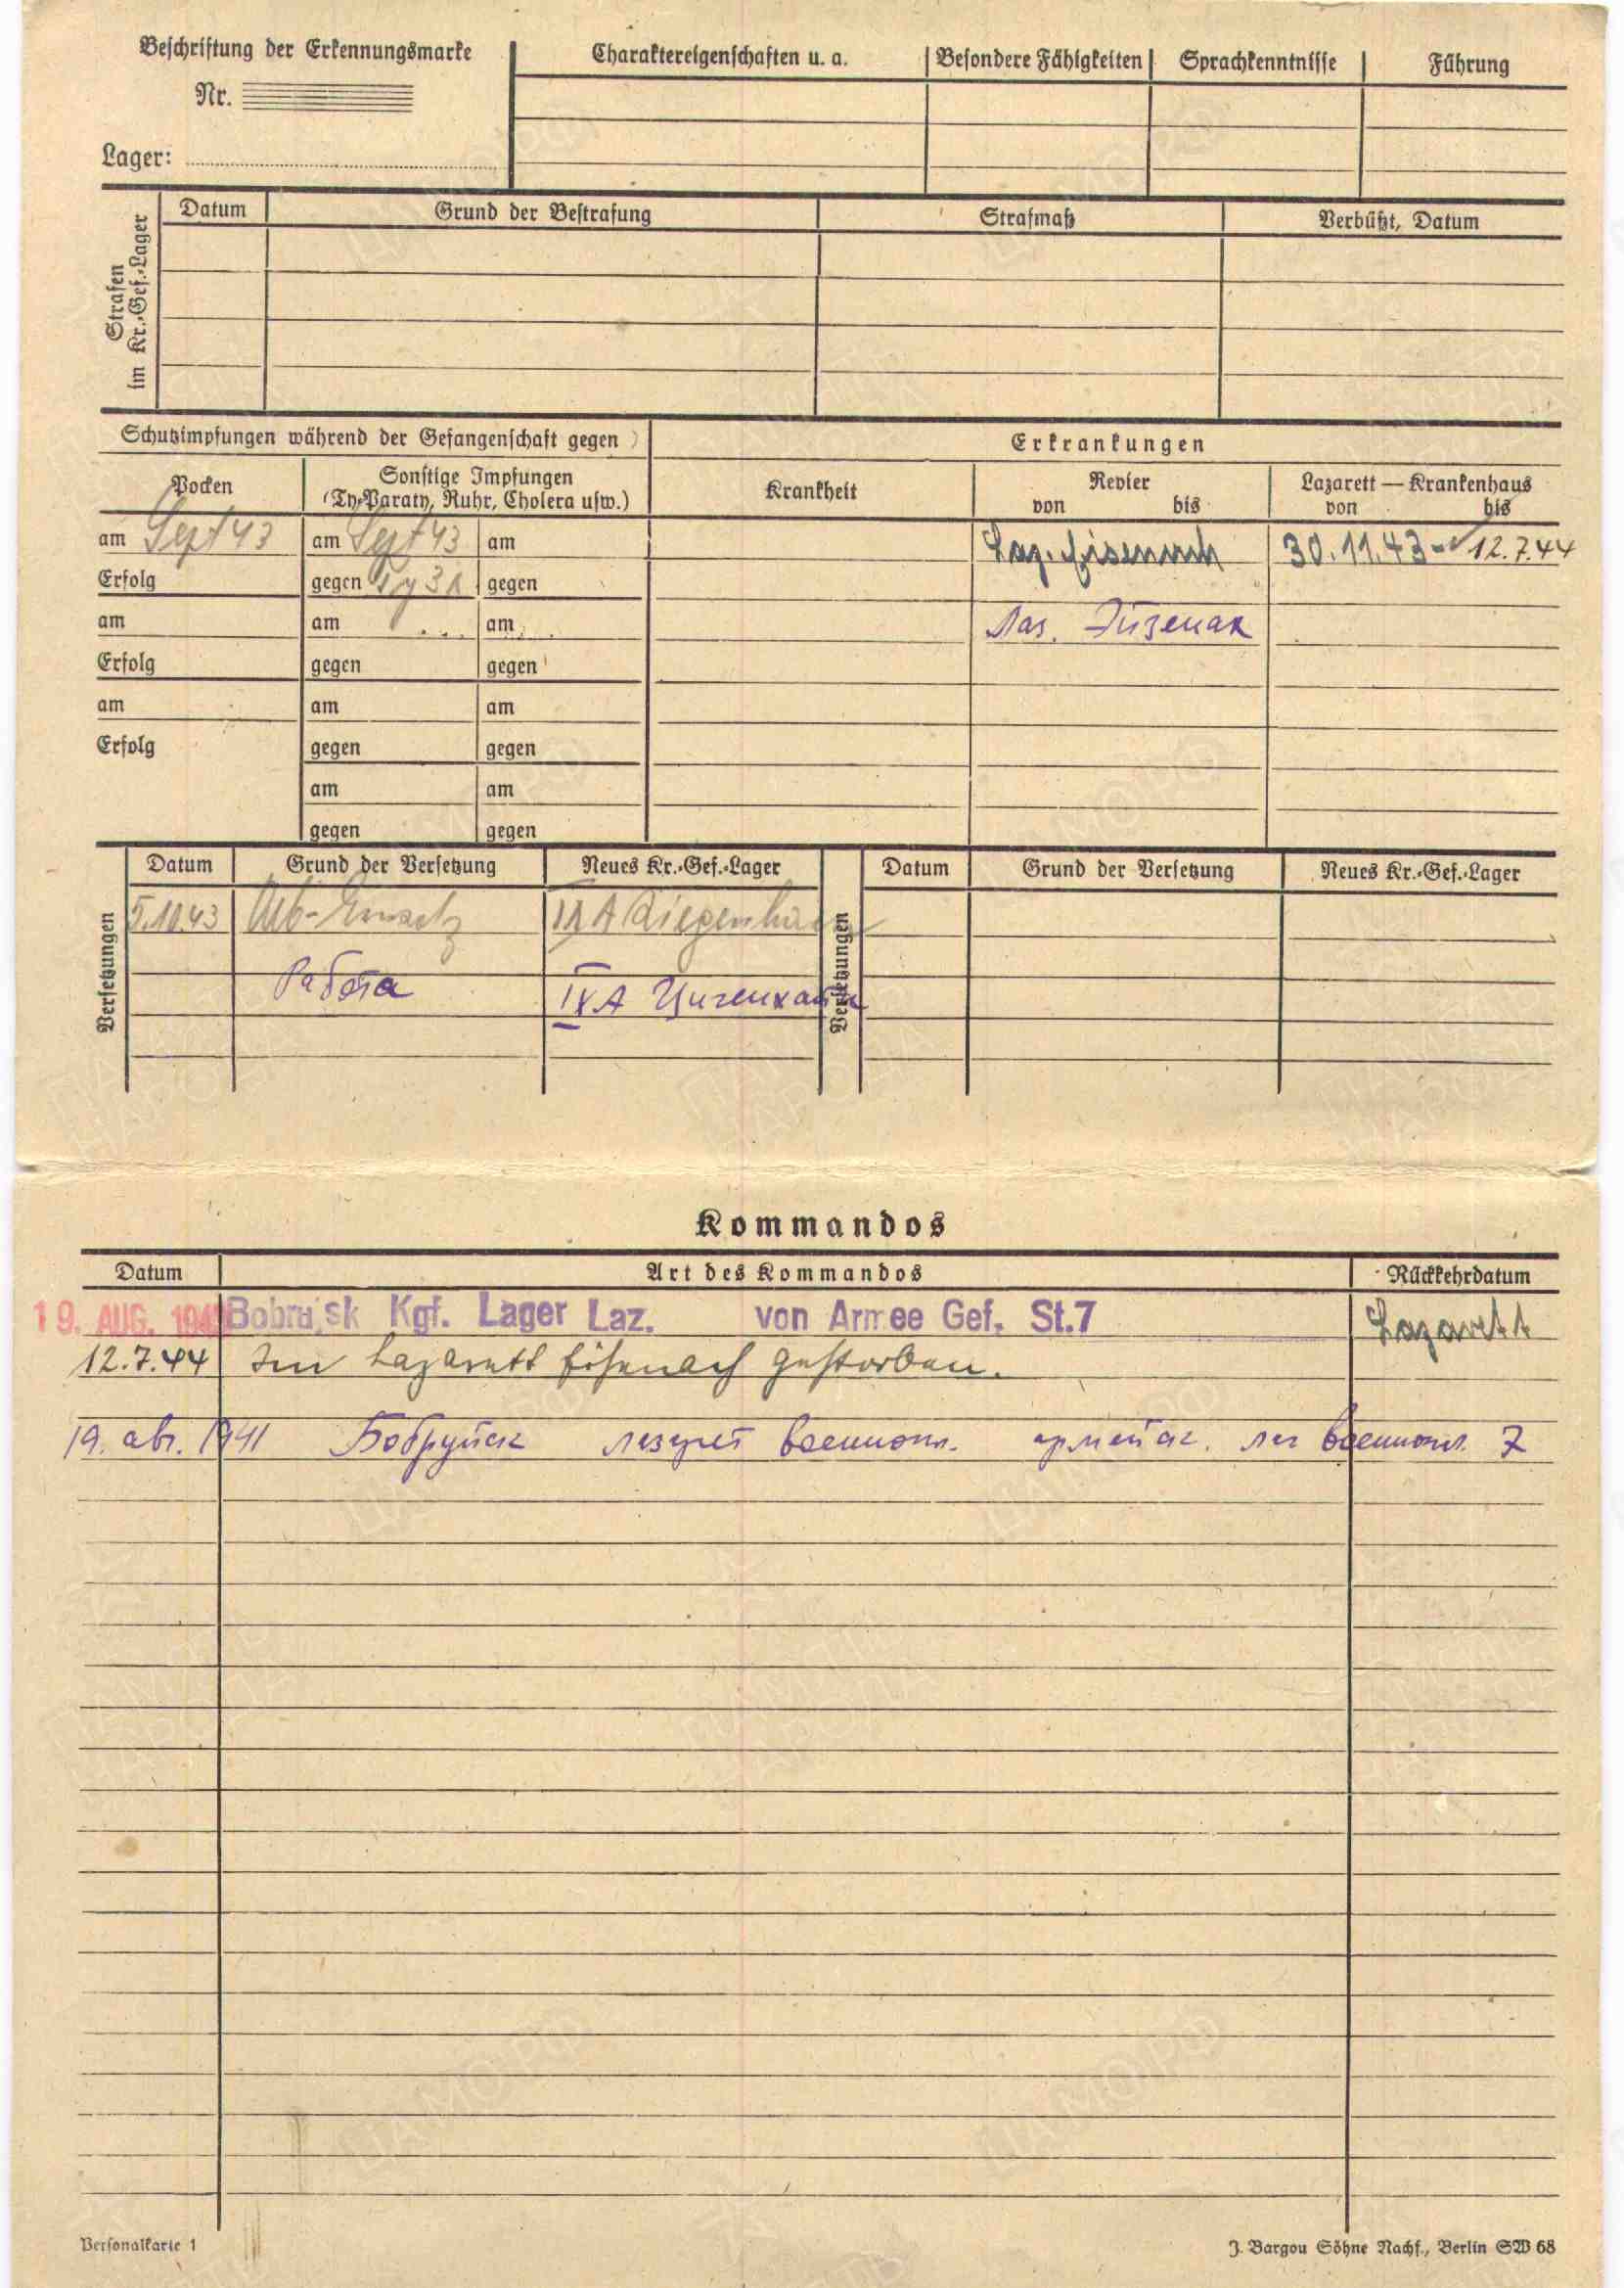 Beschriftung der Erkennungsmarke
Nr.
Lager:
Charaktereigenschaften u. a.
Besondere Fähigkeiten
Sprachkenntnisse
Führung
Strafen im Kr.-Gef.-Lager
Datum
Grund der Bestrafung
Strafmaß
Verbüßt, Datum
Schutzimpfungen während der Gefangenschaft gegen
Erkrankungen
Pocken
Sonstige Impfungen
(Ty-Paraty, Ruhr, Cholera usw.)
Krankheit
Revier
von bis
Lazarett — Krankenhaus
von bis
am Sept 43 am Sept 43 am
Laz. Eisenach 30.11.43 - 12.7.44
Erfolg gegen gegen
am am am
Лаз. Эйзенах
Erfolg gegen gegen
am am am
Erfolg gegen gegen
am am
gegen gegen
Versetzungen
Datum Grund der Versetzung Neues Kr.-Gef.-Lager
Versetzungen
Datum Grund der Versetzung Neues Kr.-Gef.-Lager
5.10.43 Arb-Einsatz IX A Ziegenhain
Работа IX A Цигенхайн
Kommandos
Datum Art des Kommandos Rückkehrdatum
19. AUG. Bobruisk Kgf. Lager Laz. von Armee Gef. St.7 Lazarett
12.7.44 Im Lazarett Eisenach gestorben.
19. авг. 1941 Бобруйск лазарет военнопл. армейск. лаг военнопл. 7
Personalkarte 1
J. Bargou Söhne Nachf., Berlin SW 68